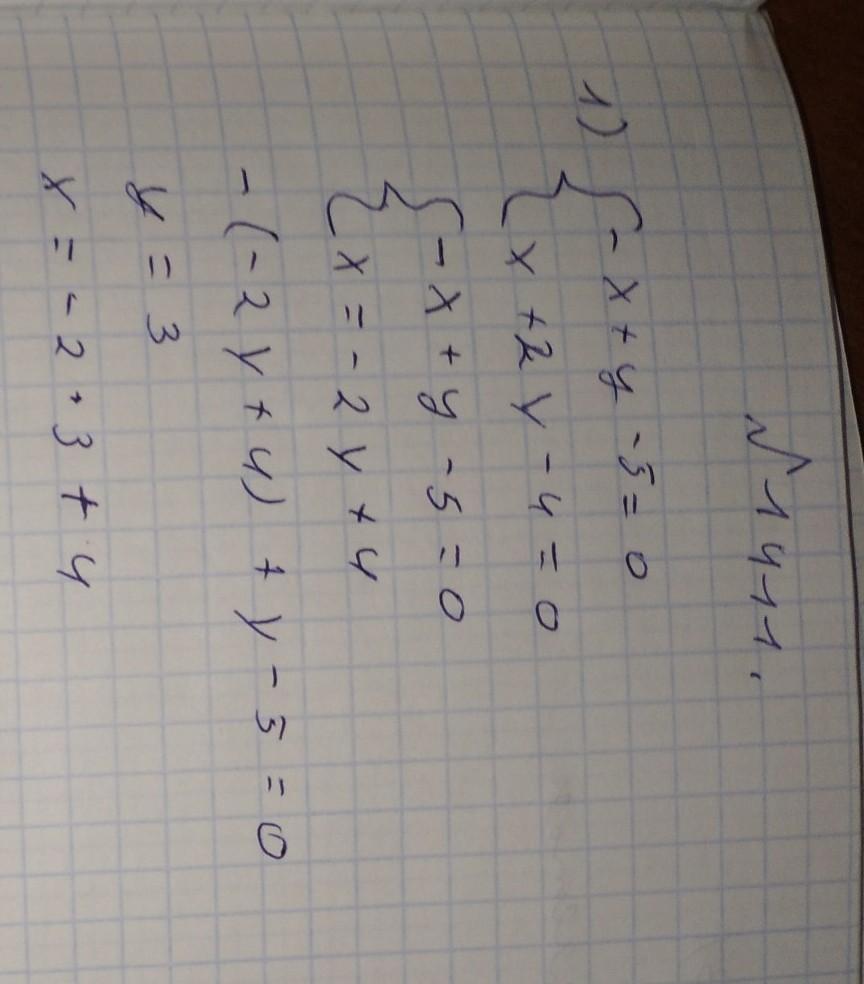 √1411.
1) { -x+y-5=0
x+2y-4=0
{ -x+y-5=0
x=-2y+4
-(-2y+4)+y-5=0
y=3
x=-2·3+4